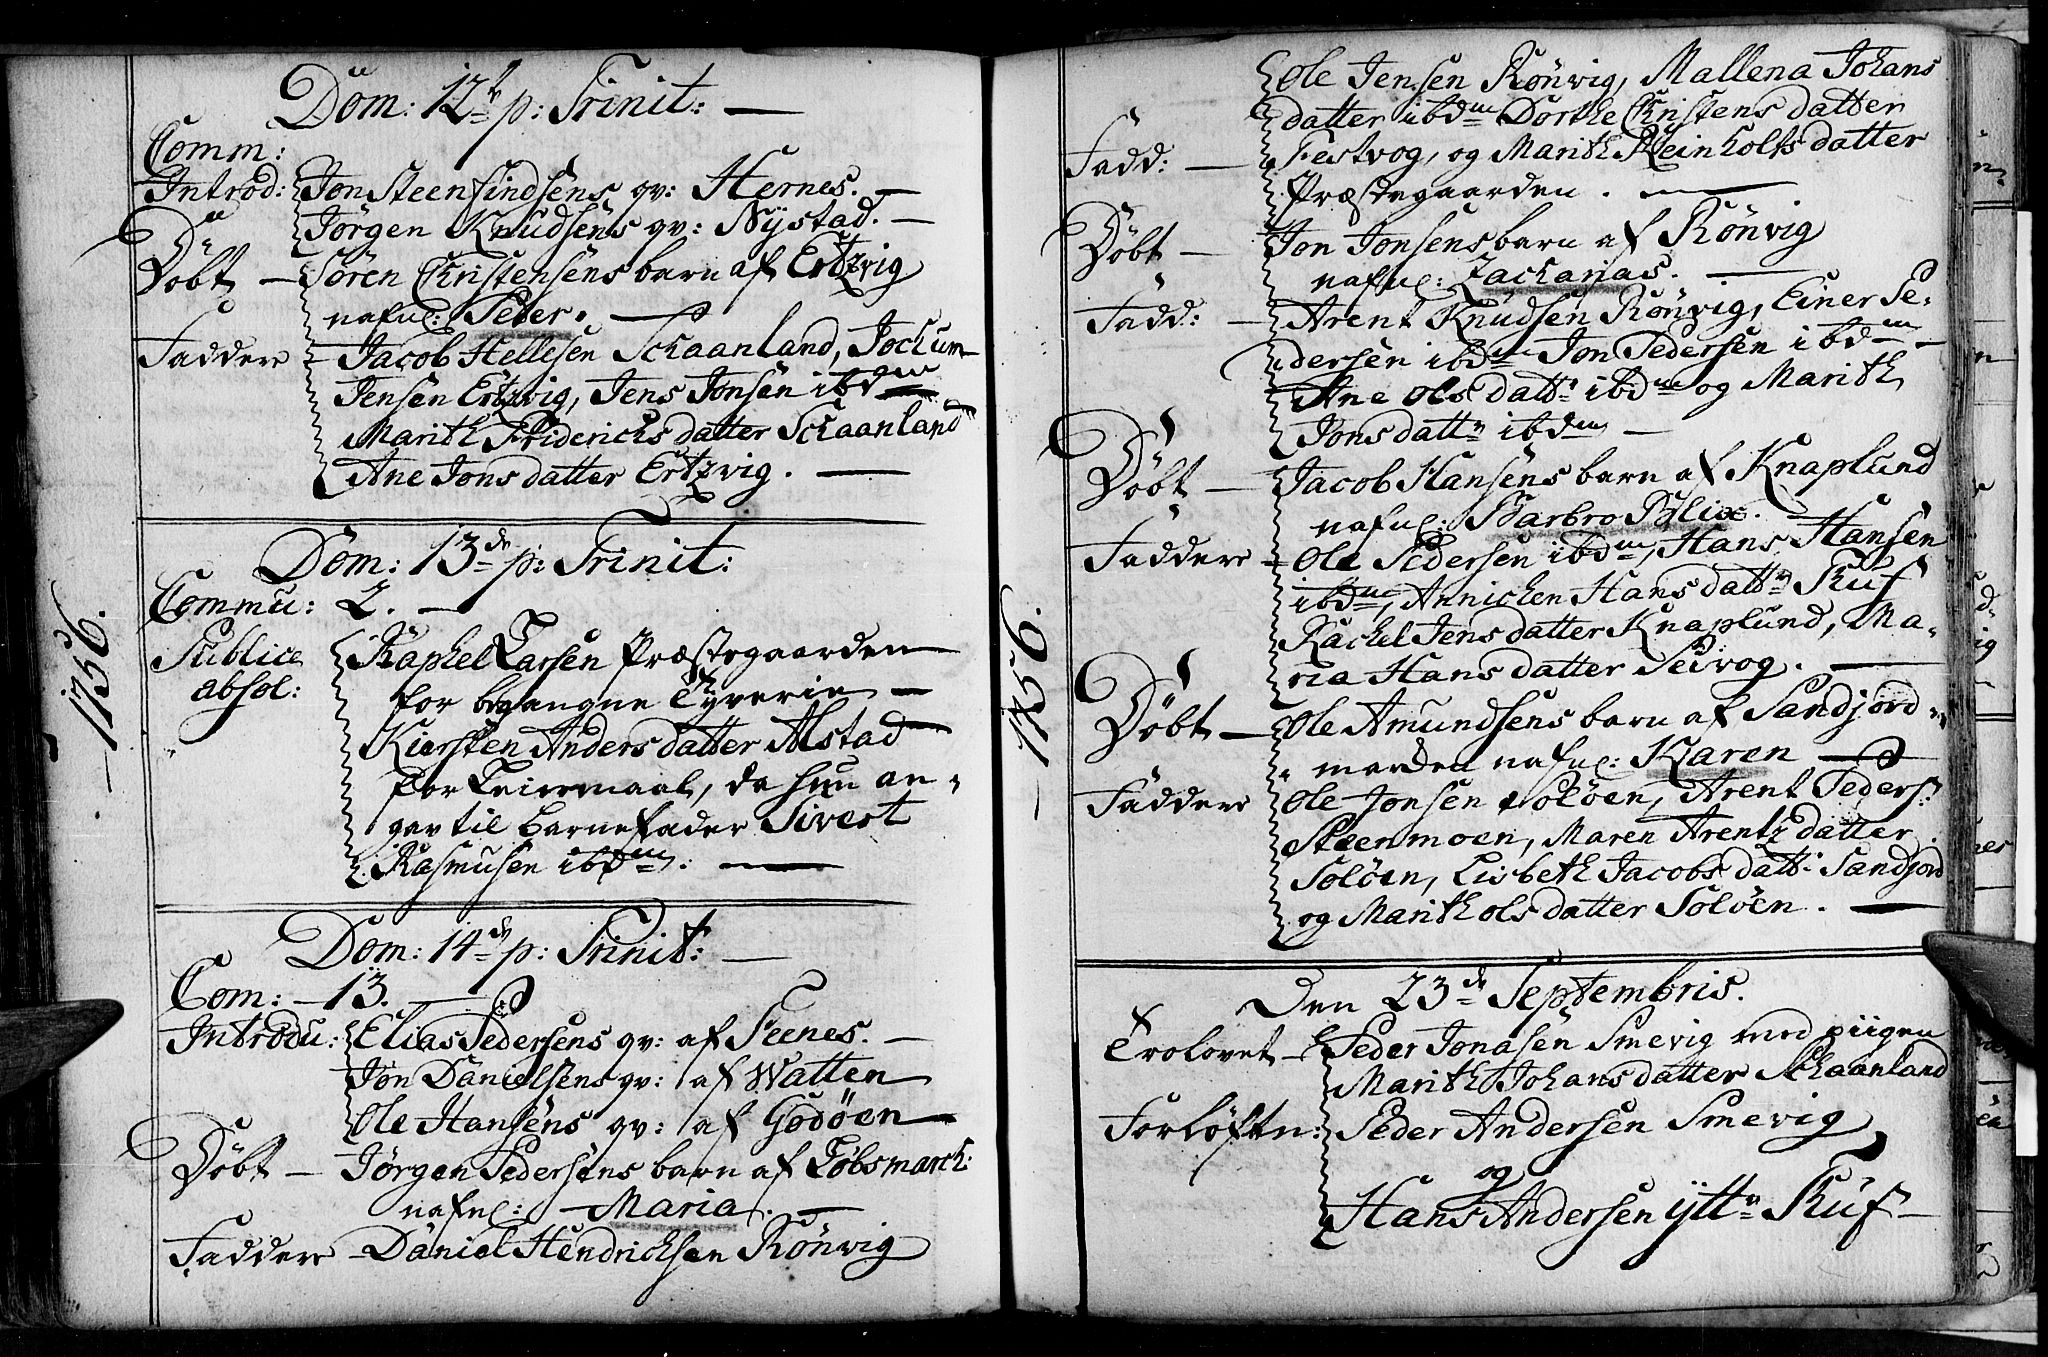 1756.
Dom: 12te p: Trinit:
Comm:
Introd: Jon Steenfindsens qv: Hernes.
Jörgen Knudsens qv: Nÿstad.
Döbt — Sören Christensens barn af Ertzvig
nafnl: Peter.
Faddere — Jacob Hellesen Schaanland, Jochum
Jensen Ertzvig, Jens Jonsen ibdm
Marith Friderichs datter Schaanland
Ane Jons datter Ertzvig.
Dom: 13de p: Trinit:
Commu: 2.
Publice absol: Raphel Larsen Præstegaarden
for begangne Tyverie
Kiersten Anders datter Alstad
for Leiermaal, da hun an-
gav til Barnefader Sivert
Rasmusen ibdm:
Dom: 14de p: Trinit:
Com: — 13.
Introdu: Elias Pedersens qv: af Feenes.
Jon Danielsens qv: af Watten
Ole Hansens qv: af Godöen
Döbt — Jörgen Pedersens barn af Löbsmarch:
nafnl: — Maria.
Faddere — Daniel Hendrichsen Rönvig
1756.
Ole Jensen Rönvig, Mallena Johans
datter ibdm Dorthe Christens datter
Fadd: — Festvog, og Marith Reinholts datter
Præstegaarden.
Döbt — Jon Jonsens barn af Rönvig
nafnl: Zacharias.
Fadd: — Arent Knudsen Rönvig, Einer Pe-
dersen ibdm Jon Pedersen ibdm
Ane Ols dattr ibdm og Marith
Jons dattr ibdm
Döbt — Jacob Hansens barn af Knaplund
nafnl: Barbro Blix.
Faddere — Ole Pedersen ibdm, Hans Hansen
ibdm, Annichen Hans dattr Kuf
Rachel Jens datter Knaplund, Ma-
ria Hans datter Seivog.
Döbt — Ole Amundsens barn af Sandjord-
marden nafnl: Karen
Faddere Ole Jonsen Solöen, Arent Peders:
Steenmoen, Maren Arentz datter
Solöen, Lisbeth Jacobs datt: Sandjord
og Marith Ols datter Solöen.
Den 23de Septembris.
Trolovet — Peder Jonasen Smevig med piigen
Marith Johans datter Schaanland
Forlöftn: Peder Andersen Smevig
og
Hans Andersen ÿttr Kuf